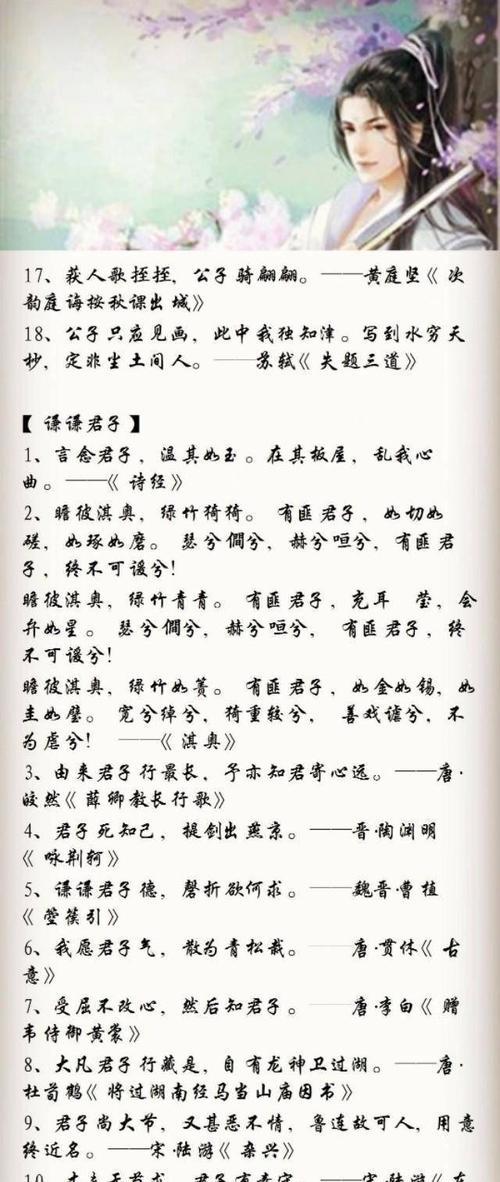 17、获人歌挃挃，公子骑翩翩。——黄庭坚《 次
韵庭诲按秋课出 城》
18、公子只应见画，此中我独知津。写到水穷天
杪，定非尘土间人。——苏轼《 失题三道》
【 谦谦君子 】
1、言念君子，温其如玉。在其板屋，乱我心
曲。——《 诗经》
2、瞻彼淇奥，绿竹猗猗。 有匪君子，如切如
磋，如琢如磨。 瑟兮僩兮，赫兮咺兮，有匪君
子，终不可谖兮！
瞻彼淇奥，绿竹青青。 有匪君子，充耳　莹，会
弁如星。 瑟兮僩兮，赫兮咺兮， 有匪君子，终
不可谖兮！
瞻彼淇奥，绿竹如箦。 有匪君子，如金如锡，如
圭如璧。 宽兮绰兮，猗重较兮， 善戏谑兮，不
为虐兮！ ——《 淇奥》
3、由来君子行最长，予亦知君寄心远。——唐·
皎然《 薛卿教长行歌》
4、君子死知己，提剑出燕京。——晋·陶渊明
《 咏荆轲》
5、谦谦君子德，磬折欲何求。——魏晋·曹植
《 箜篌引》
6、我愿君子气，散为青松栽。——唐·贯休《 古
意》
7、受屈不改心，然后知君子。——唐·李白《 赠
韦侍御黄裳》
8、大凡君子行藏是，自有龙神卫过湖。——唐·
杜荀鹤《 将过湖南经马当山庙因书》
9、君子尚大节，又甚恶不情，鲁连故可人，用意
终近名。——宋·陆游《 杂兴》